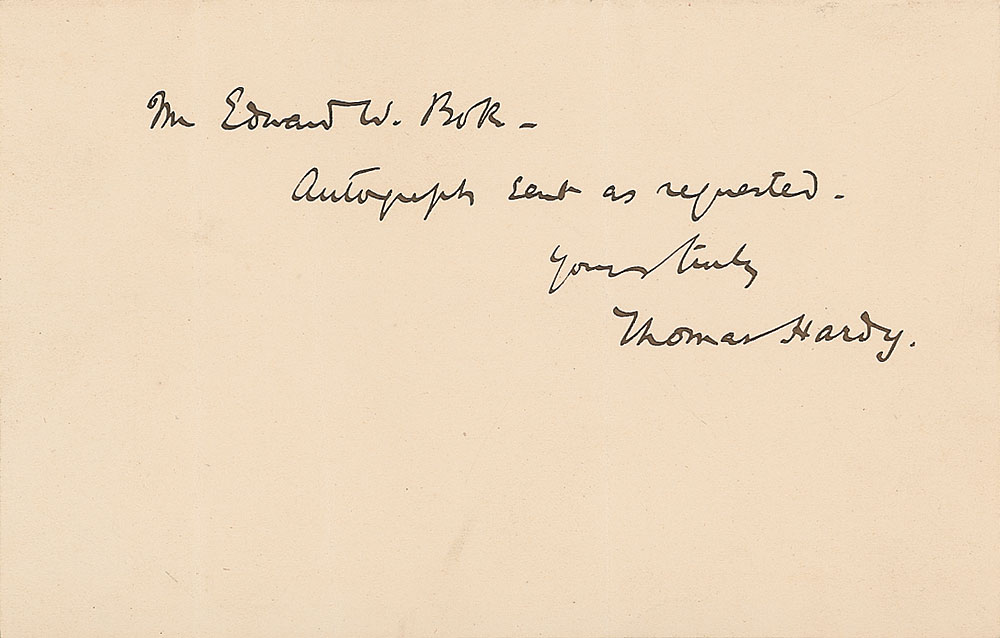 Mr Edward W. Bok -
Autograph sent as requested -
Yours truly
Thomas Hardy.